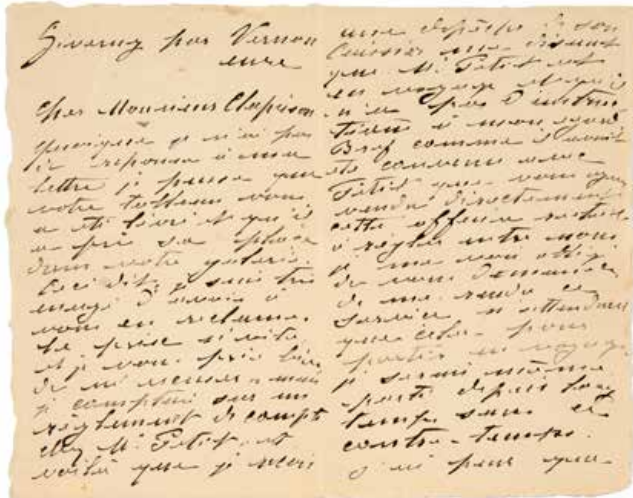 Giverny par Vernon
eure
cher Monsieur Clapisson
quoique je n'ai pas
de reponse à ma
lettre je pense que
votre tableau vous
a été livré et qu'il
a pris sa place
dans votre galerie.
Ceci dit, je suis très
ennuyé d'avoir à
vous en reclamer
le prix si vite
et je vous prie bien
de m'excuser mais
je comptais sur un
règlement de compte
chez M. Petit et
voilà que je reçois
une dépêche de son
caissier me disant
que M. Petit est
en voyage et qu'il
n'a pas d'instruc
tions à mon égard
Bref comme il avait
été convenu avec
Petit que vous ayant
vendu directement
cette affaire restait
à régler entre nous
je me vois obligé
de vous demander
de me rendre ce
service n'attendant
que cela pour
partir en voyage
je serais même
parti depuis long
temps sans ce
contre-temps.
j'ai peur que